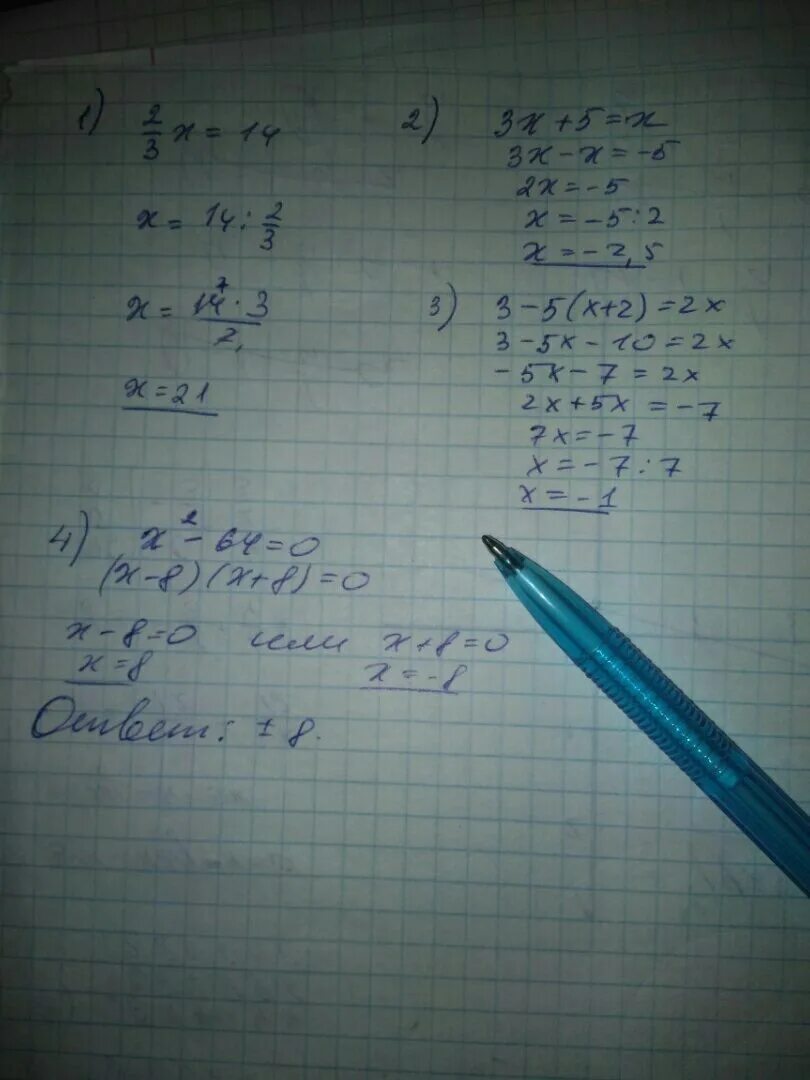 1) 2/3 x = 14
x = 14 : 2/3
x = 14⁷ · 3 / 2
x = 21
2) 3x + 5 = x
3x - x = -5
2x = -5
x = -5 : 2
x = -2,5
3) 3 - 5(x+2) = 2x
3 - 5x - 10 = 2x
-5x - 7 = 2x
2x + 5x = -7
7x = -7
x = -7 : 7
x = -1
4) x² - 64 = 0
(x-8)(x+8) = 0
x - 8 = 0 или x + 8 = 0
x = 8 x = -8
Ответ: ± 8.